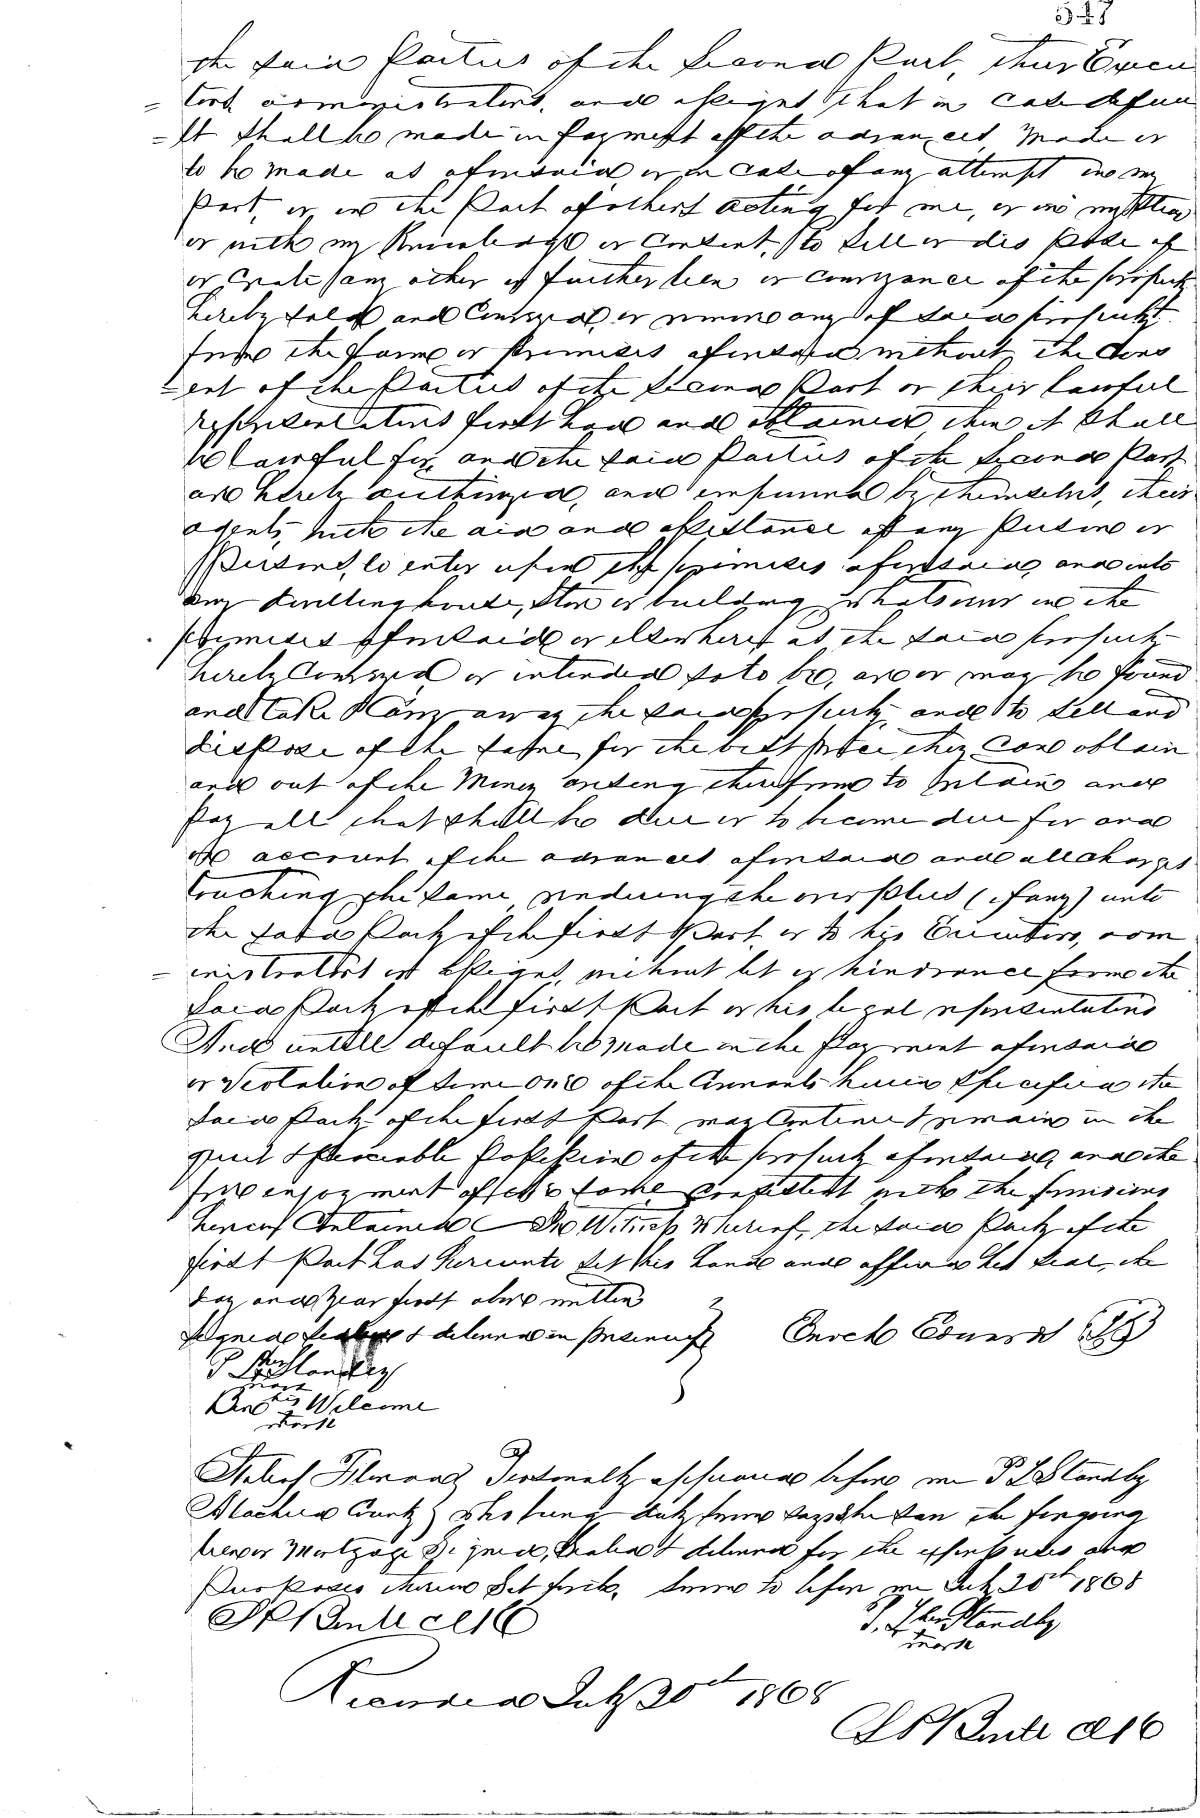 547
the said Parties of the Second Part, their Execu
= tors administrators, and assigns that in case defau
= lt shall be made in payment of the advances made or
to be made as aforesaid or in case of any attempt on my
Part, or on the Part of others acting for me, or in my stead
or with my Knowledge or Consent, to sell or dispose of
or Create any other or further lien or conveyance of the property
hereby sold and Conveyed, or remove any of said property
from the farm or premises aforesaid without the Cons
= ent of the Parties of the Second Part or their lawful
representatives first had and obtained, then it shall
be lawful for, and the said Parties of the Second Part
are hereby authorized, and empowered by themselves, their
agents, with the aid and assistance of any Person or
Persons, to enter upon the premises aforesaid, and into
any dwelling house, store or building whatsoever on the
premises aforesaid or elsewhere as the said property
hereby Conveyed or intended so to be, are or may be found
and take & Carry away the said property and to sell and
dispose of the same for the best price they can obtain
and out of the Money arising therefrom to retain and
Pay all that shall be due or to become due for and
on account of the advances aforesaid and all charges
touching the same, rendering the overplus (if any) unto
the said Party of the first Part or to his Executors, adm
= inistrators or assigns, without let or hindrance from the
said Party of the first Part or his legal representatives
And untill default be made in the Payment aforesaid
or Violation of some one of the Covenants herein Specified the
said Party of the first Part may Continue & remain in the
quiet & peaceable Possession of the property aforesaid, and the
free enjoyment of the same consistent with the provisions
herein Contained In Witness Whereof, the said Party of the
first Part has hereunto set his hand and affixed his seal, the
day and year first above written
Signed sealed & delivered in presence of Enoch Edwards
P L Standley
mark
his Welcome
mark
State of Florida Personally appeared before me P L Standley
Alachua County who being duly sworn says she saw the foregoing
lien or Mortgage Signed, Sealed & delivered for the uses and
Purposes therein Set forth, Sworn to before me July 20th 1868
P. L. her Standley
mark
Recorded July 20th 1868